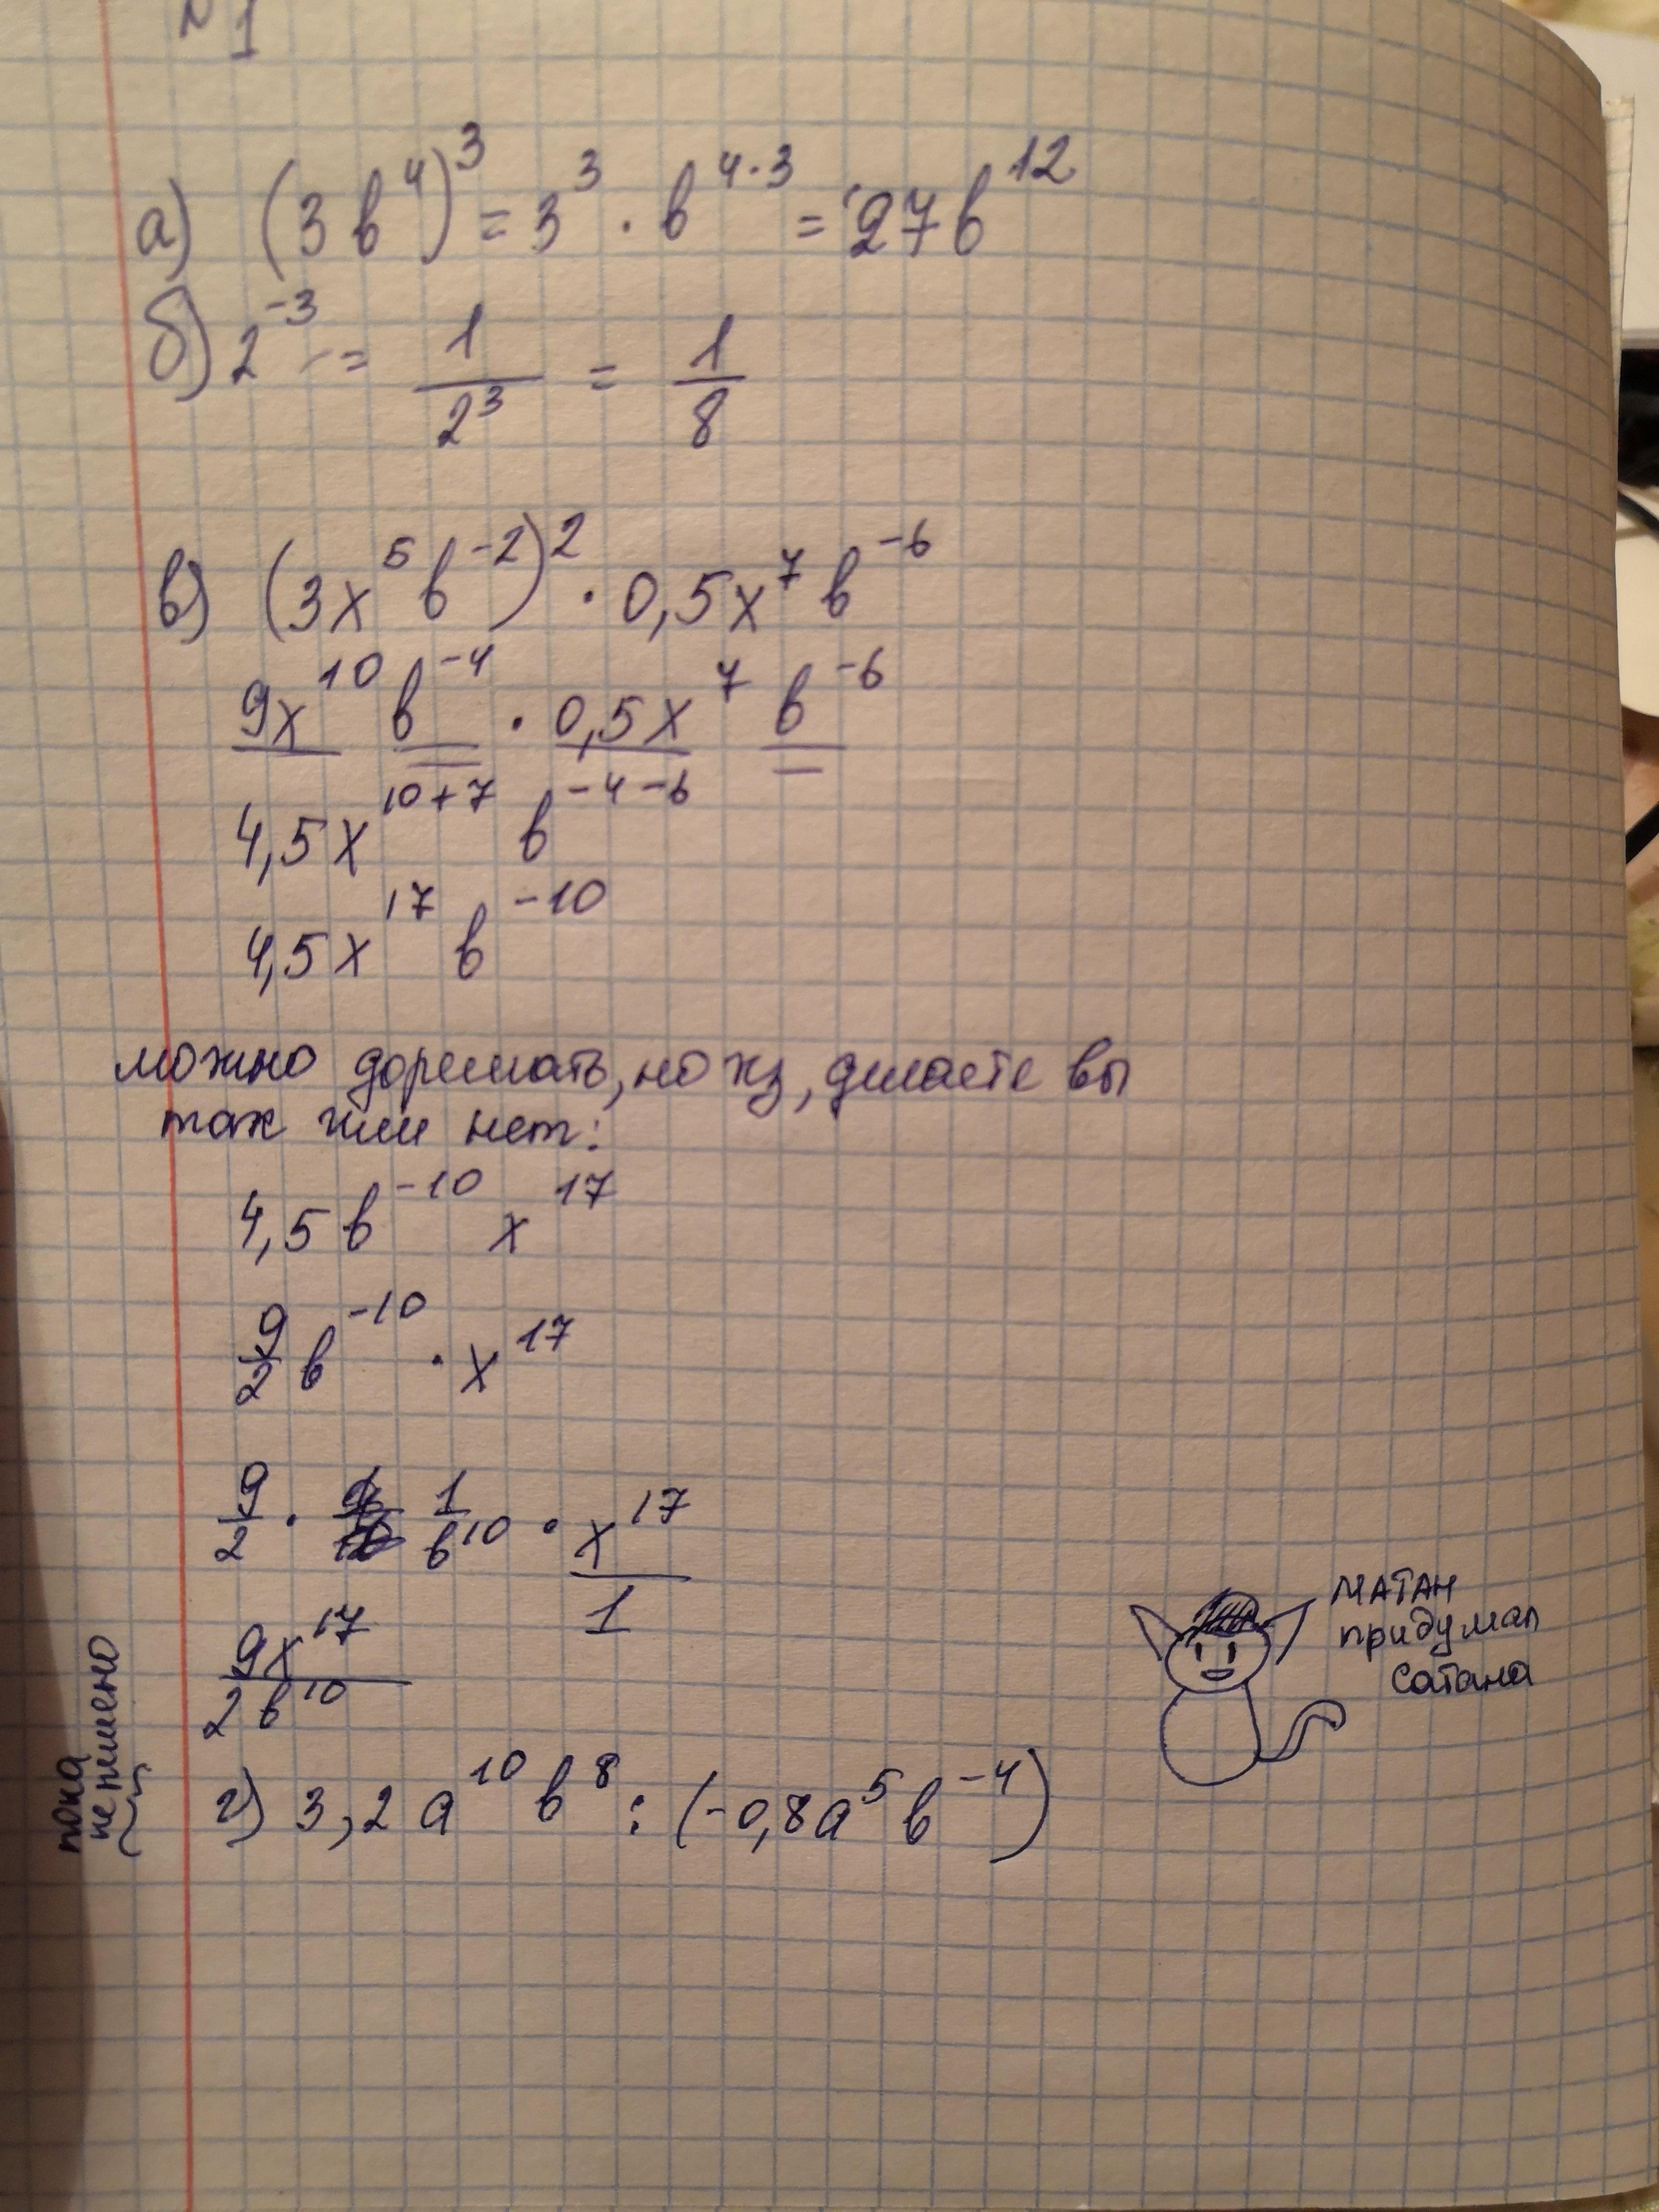 №1
а) (3b⁴)³ = 3³ · b⁴·³ = 27b¹²
б) 2⁻³ = 1/2³ = 1/8
в) (3x⁵b⁻²)² · 0,5x⁷b⁻⁶
9x¹⁰ b⁻⁴ · 0,5x⁷ b⁻⁶
4,5x¹⁰⁺⁷ b⁻⁴⁻⁶
4,5x¹⁷ b⁻¹⁰
можно дорешать, но хз, делаете вы
так или нет:
4,5b⁻¹⁰ x¹⁷
9/2 b⁻¹⁰ · x¹⁷
9/2 · 1/b¹⁰ · x¹⁷/1
9x¹⁷/2b¹⁰
МАТАН
придумал
сатана
пока
не решено
г) 3,2a¹⁰b⁸ : (-0,8a⁵b⁻⁴)